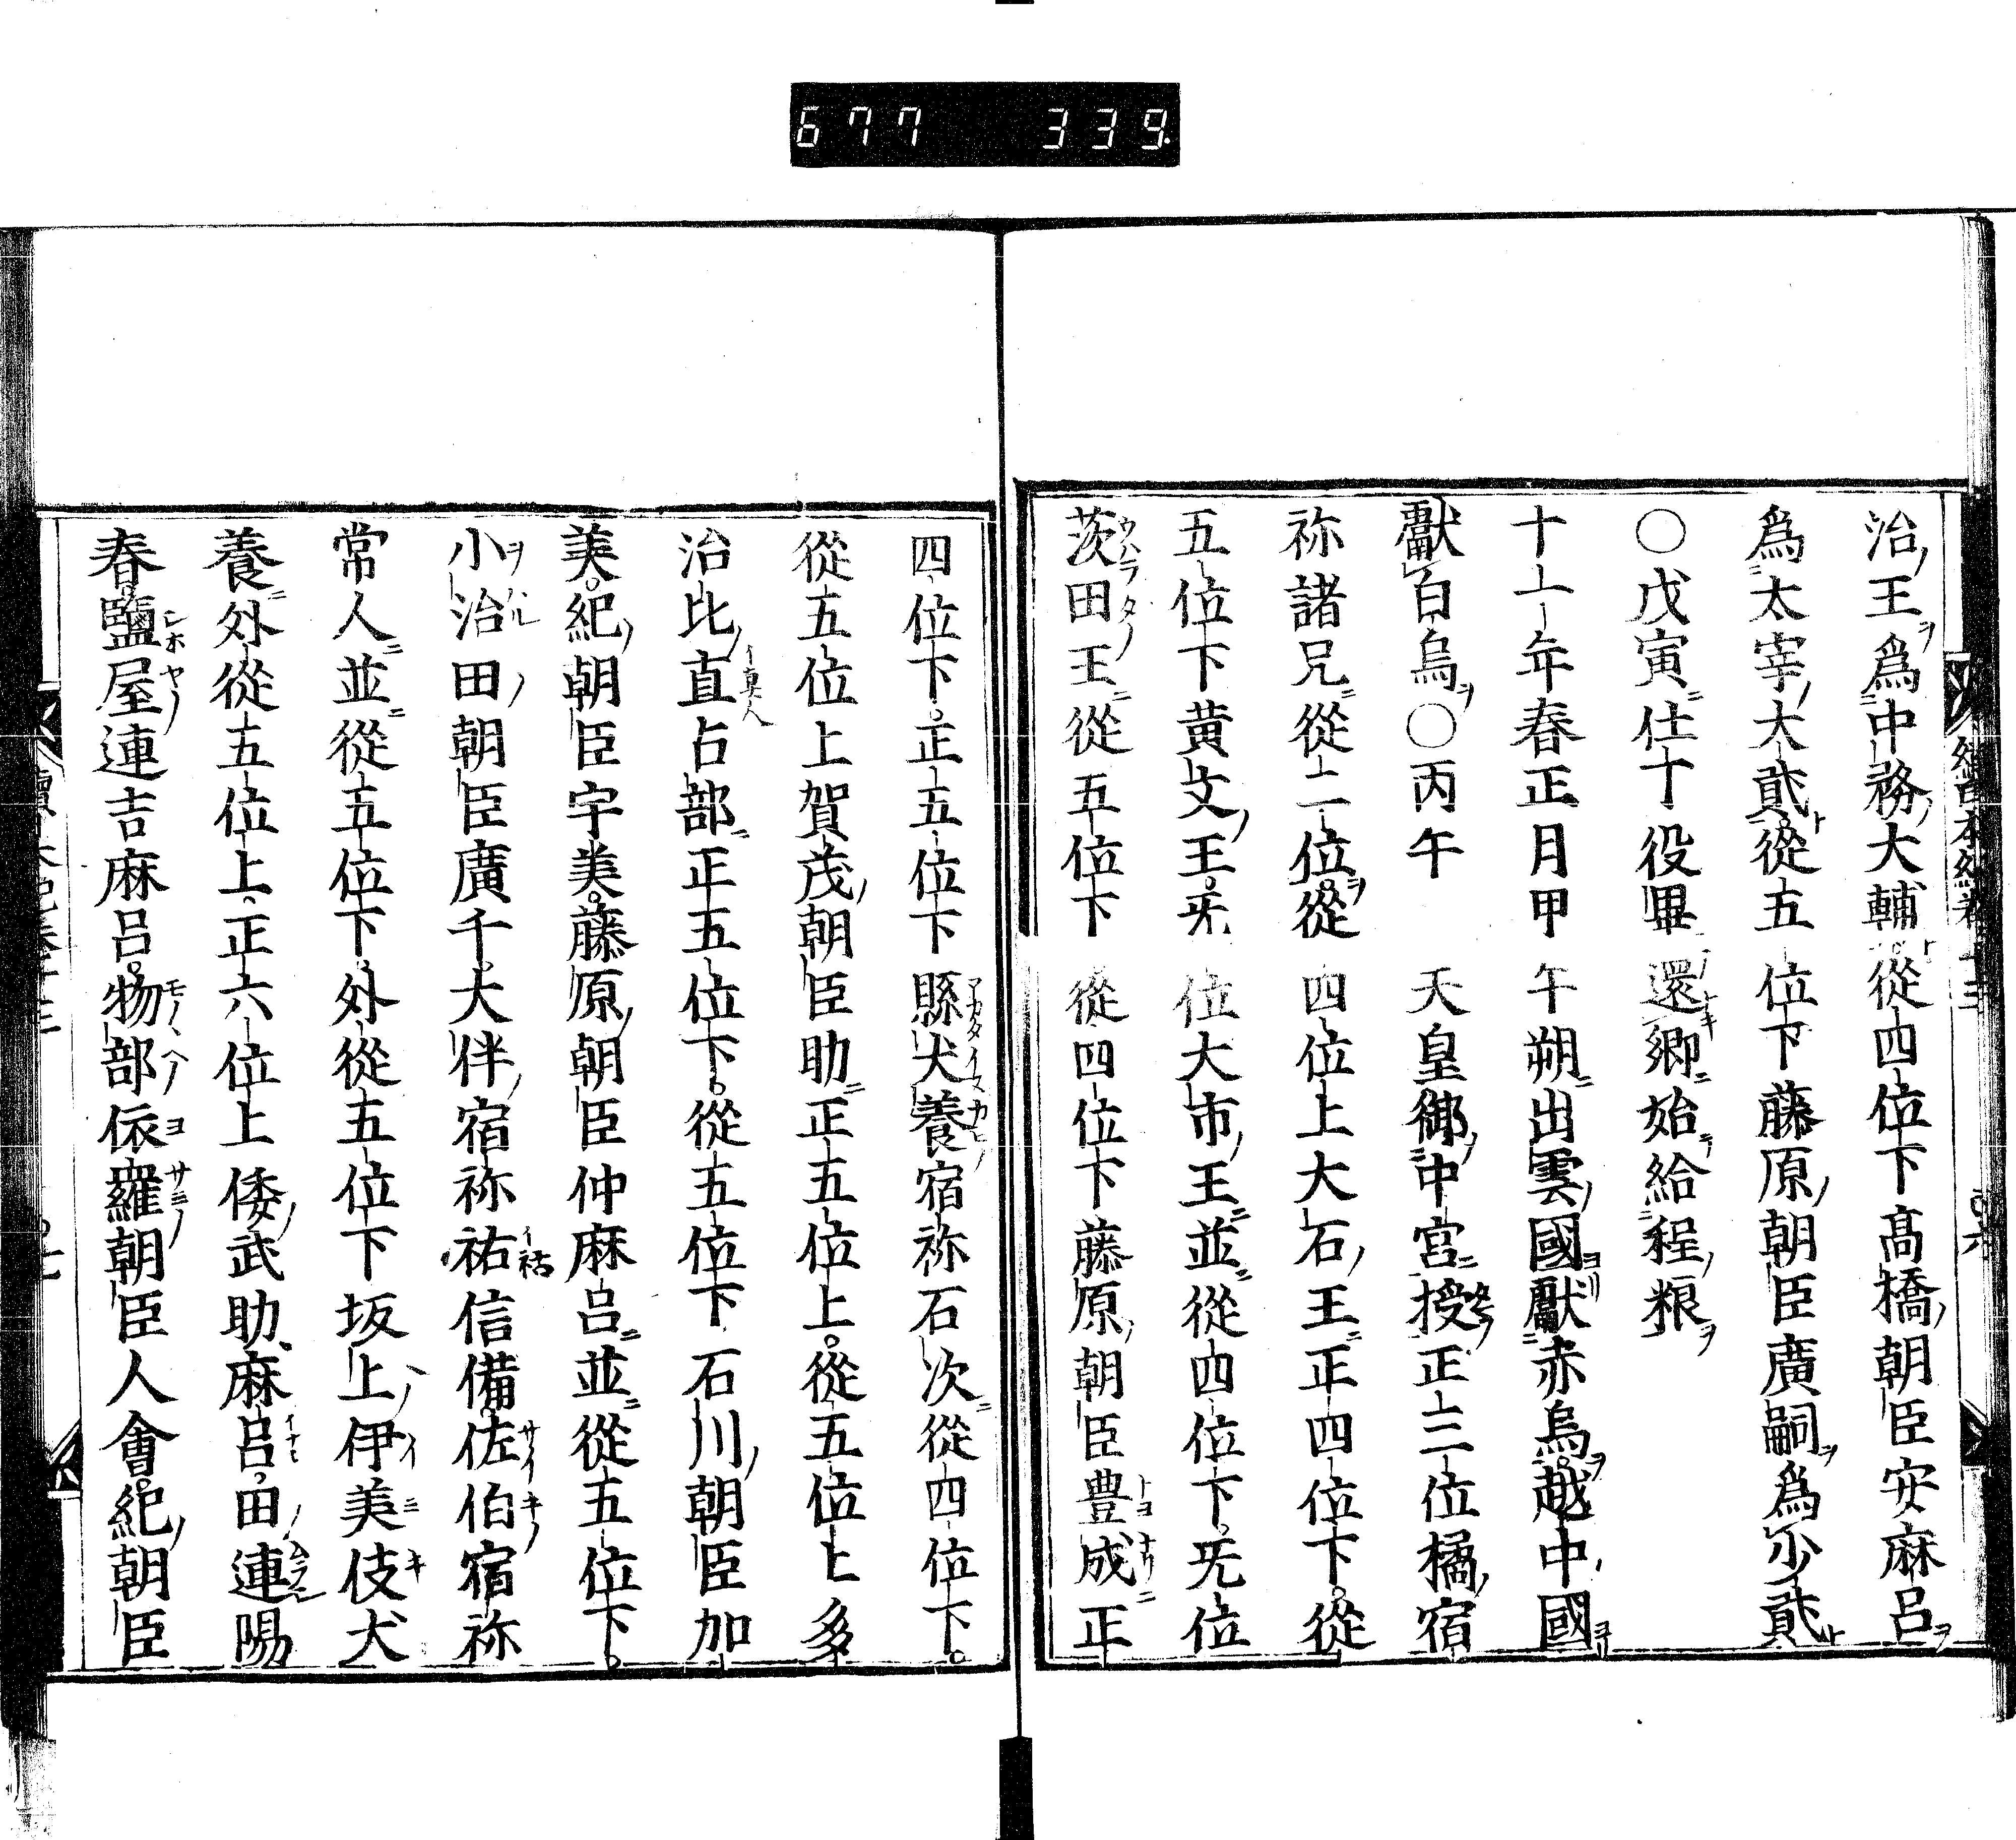 677 339
治王爲中務大輔從四位下髙橋朝臣安麻呂
爲太宰大貳從五位下藤原朝臣廣嗣爲少貳
○戊寅仕丁役畢還郷始給程粮
十一年春正月甲午朔出雲國獻赤烏越中國
獻白烏○丙午天皇御中宮授正三位橘宿
祢諸兄從二位從四位上大石王正四位下從
五位下黄文王旡位大市王並從四位下旡位
茨田王從五位下從四位下藤原朝臣豊成正
四位下正五位下縣犬養宿祢石次從四位下
從五位上賀茂朝臣助正五位上從五位上多
治比直占部正五位下從五位下石川朝臣加
美紀朝臣宇美藤原朝臣仲麻呂並從五位下
小治田朝臣廣千大伴宿祢祐信備佐伯宿祢
常人並從五位下外從五位下坂上伊美伎犬
養外從五位上正六位上倭武助麻呂田連陽
春鹽屋連吉麻呂物部依羅朝臣人會紀朝臣